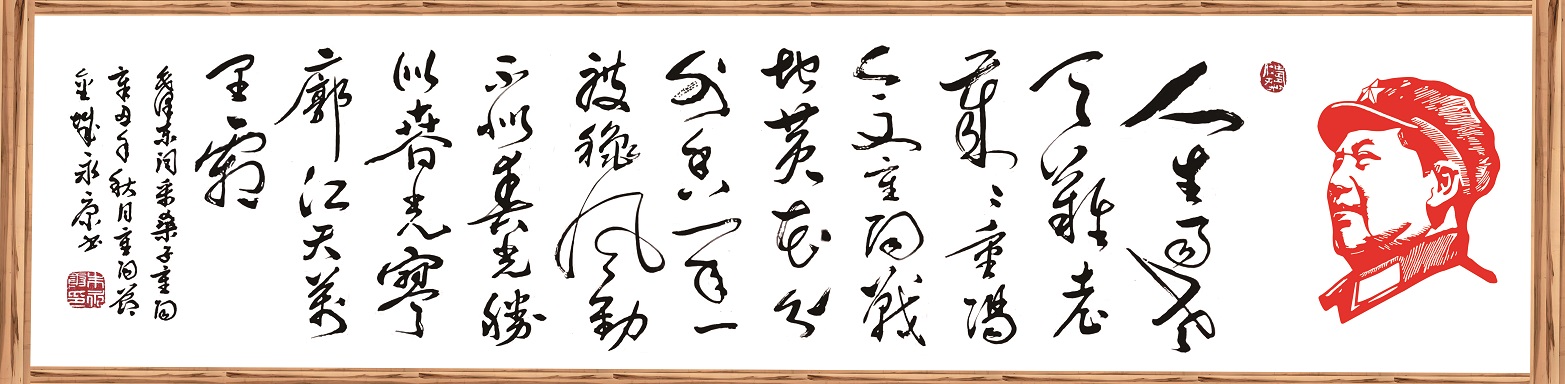 人生易老
天難老
歲々重陽
今又重阳戰
地黄花分
外香一年一
度秋風勁
不似春光勝
似春光寥
廓江天萬
里霜
毛澤东词采桑子重阳
辛丑年秋月重阳节
金城永康书